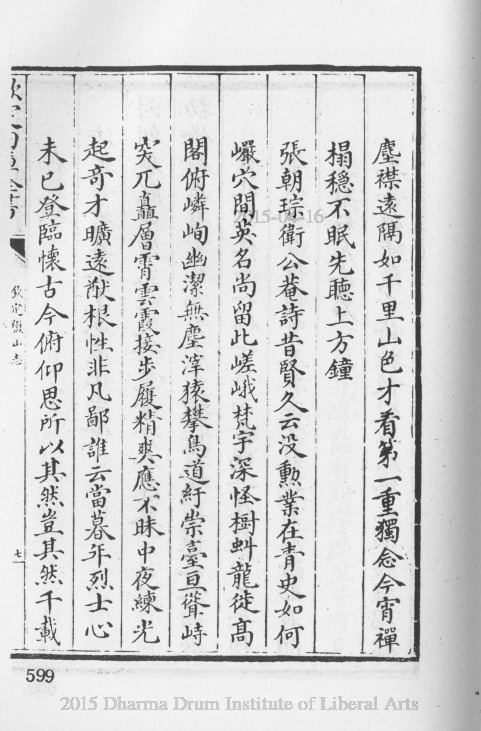 塵襟遠隔如千里山色才看第一重獨念今宵禪
榻穩不眠先聽上方鐘
張朝琮衛公菴詩昔賢久云没勲業在青史如何
巗穴間英名尚留此嵯峨梵宇深怪樹虬龍徙髙
閣俯嶙峋幽潔無塵滓猿攀鳥道紆崇臺亘聳峙
突兀矗層霄雲霞接步履精爽應不昧中夜練光
起奇才曠遠猷根性非凡鄙誰云當暮年烈士心
未已登臨懷古今俯仰思所以其然豈其然千載
欽定四庫全書
欽定盤山志
七
599
2015-04-16
2015 Dharma Drum Institute of Liberal Arts